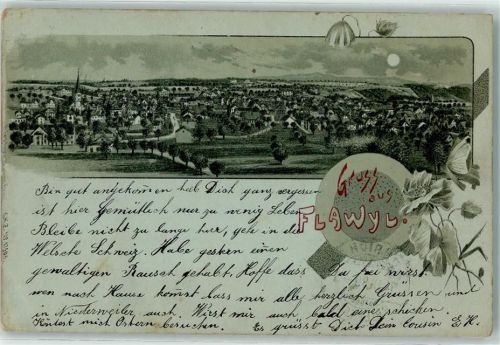 Gruss
aus
FLAWYL.
Bin gut angekommen hab Dich ganz vergessen
ist hier Gemütlich nur zu wenig Leben
Bleibe nicht zu lange hier, geh in die
Welsche Schweiz. Habe gestern einen
gewaltigen Rausch gehabt. Hoffe dass Du frei wirst
wen nach Hause kommst lass mir alle herzlich Grüssen und
in Niederweiler auch. Wirst mir auch bald eine schicken.
Könntest mich Ostern besuchen. Es grüsst Dich Dein Cousin E.H.